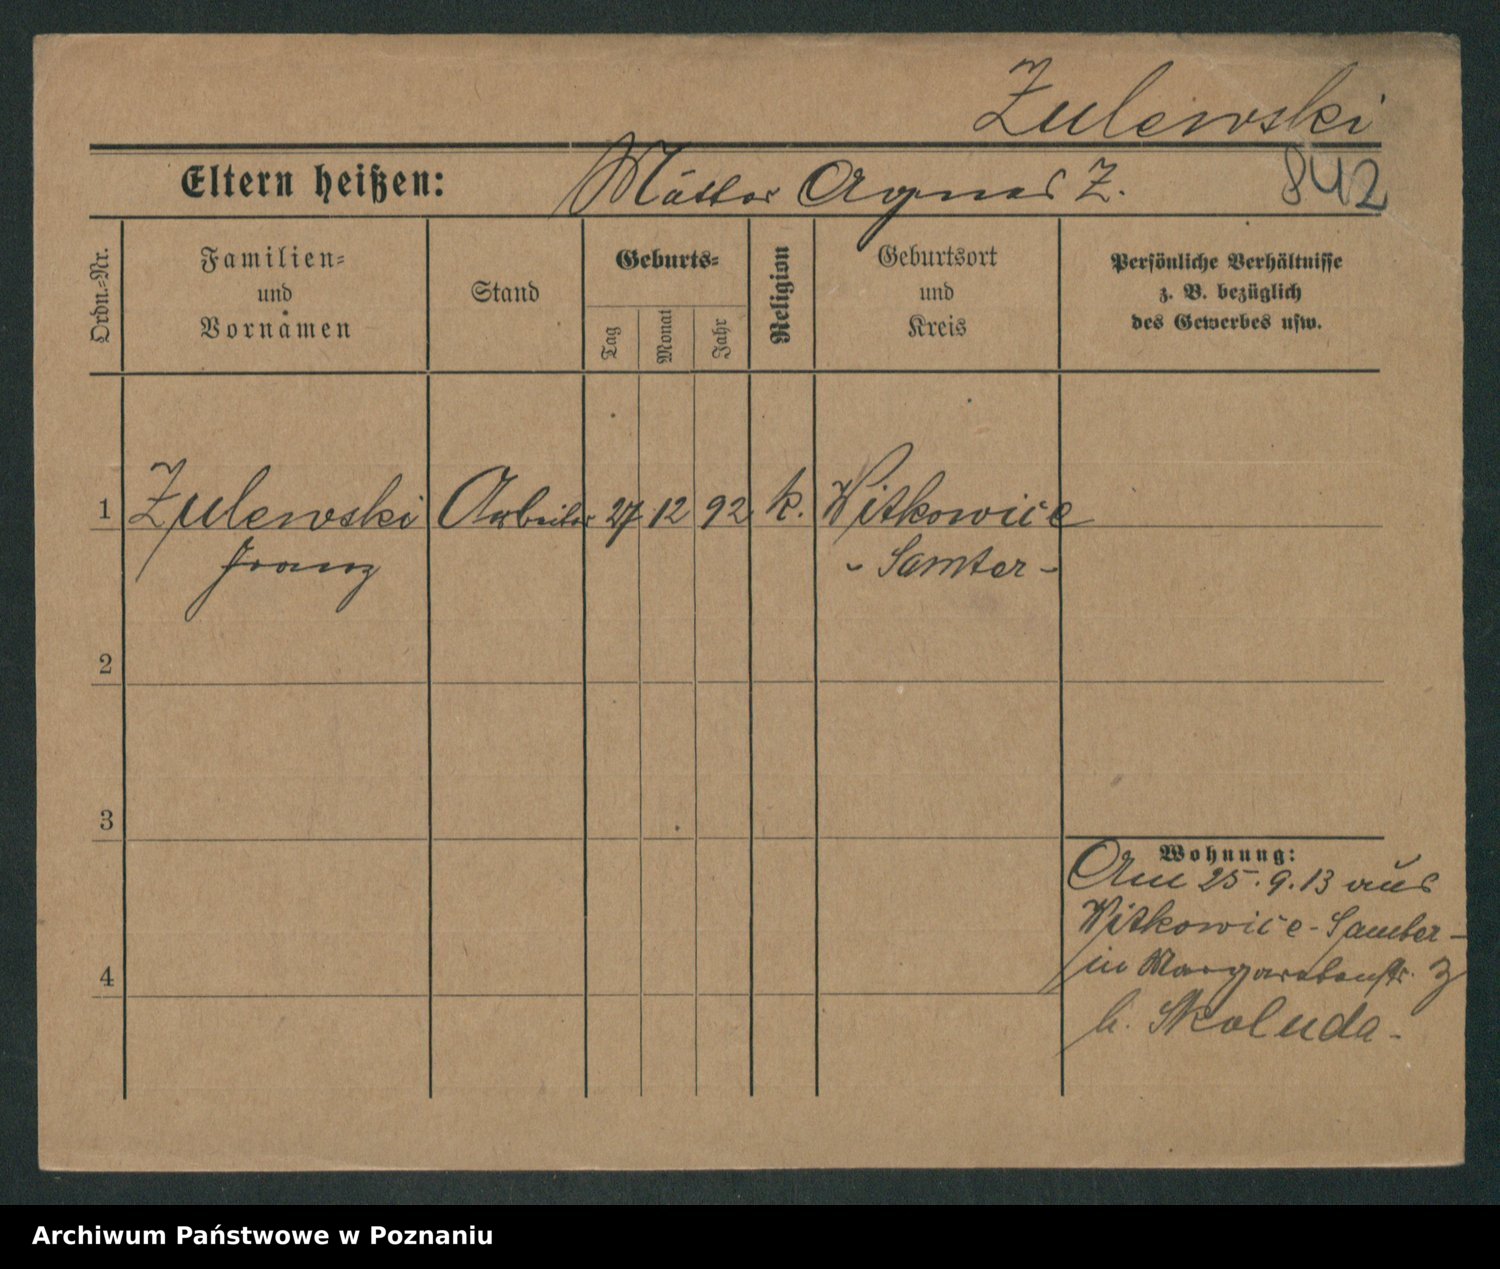 Zulewski
Eltern heißen: Mutter Agnes Z. 842
Ordn.-Nr.
Familien-
und
Vornamen
Stand
Geburts-
Tag
Monat
Jahr
Religion
Geburtsort
und
Kreis
Persönliche Verhältnisse
z. B. bezüglich
des Gewerbes usw.
1 Zulewski Arbeiter 27 12 92 k. Witkowice
Franz - Samter -
2
3
Wohnung:
Am 25.9.13 aus
Witkowice - Samter -
4 in Margaretenstr. 3
b. Skoluda -
Archiwum Państwowe w Poznaniu